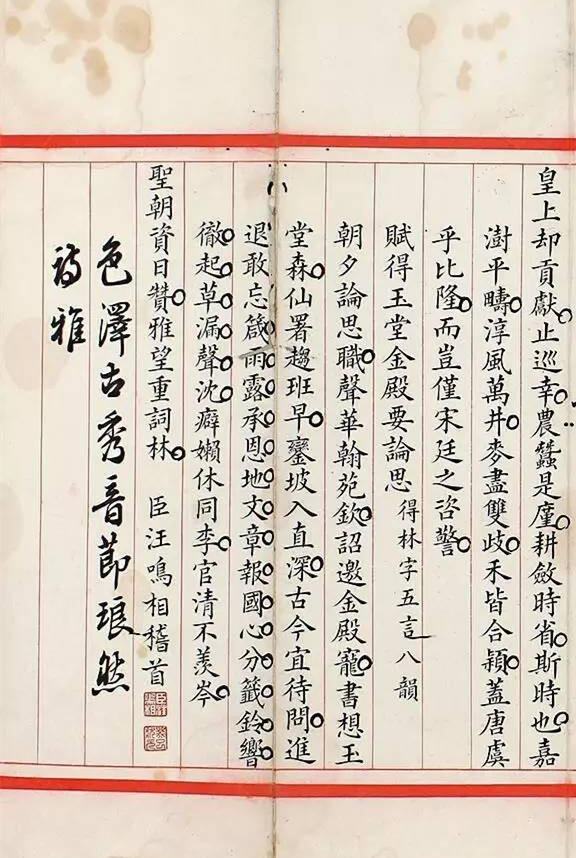 皇上却貢獻止巡幸農蠶是廑耕斂時省斯時也嘉
澍平疇淳風萬井麥盡雙歧禾皆合穎蓋唐虞
乎比隆而豈僅宋廷之咨警
賦得玉堂金殿要論思 得林字五言八韻
朝夕論思職聲華翰苑欽詔邀金殿寵書想玉
堂森仙署趨班早鑾坡入直深古今宜待問進
退敢忘箴雨露承恩地文章報國心分籤鈴響
徹起草漏聲沈癖嬾休同李官清不羨岑
聖朝資日贊雅望重詞林 臣汪鳴相稽首
色澤古秀音節琅然
詩雅